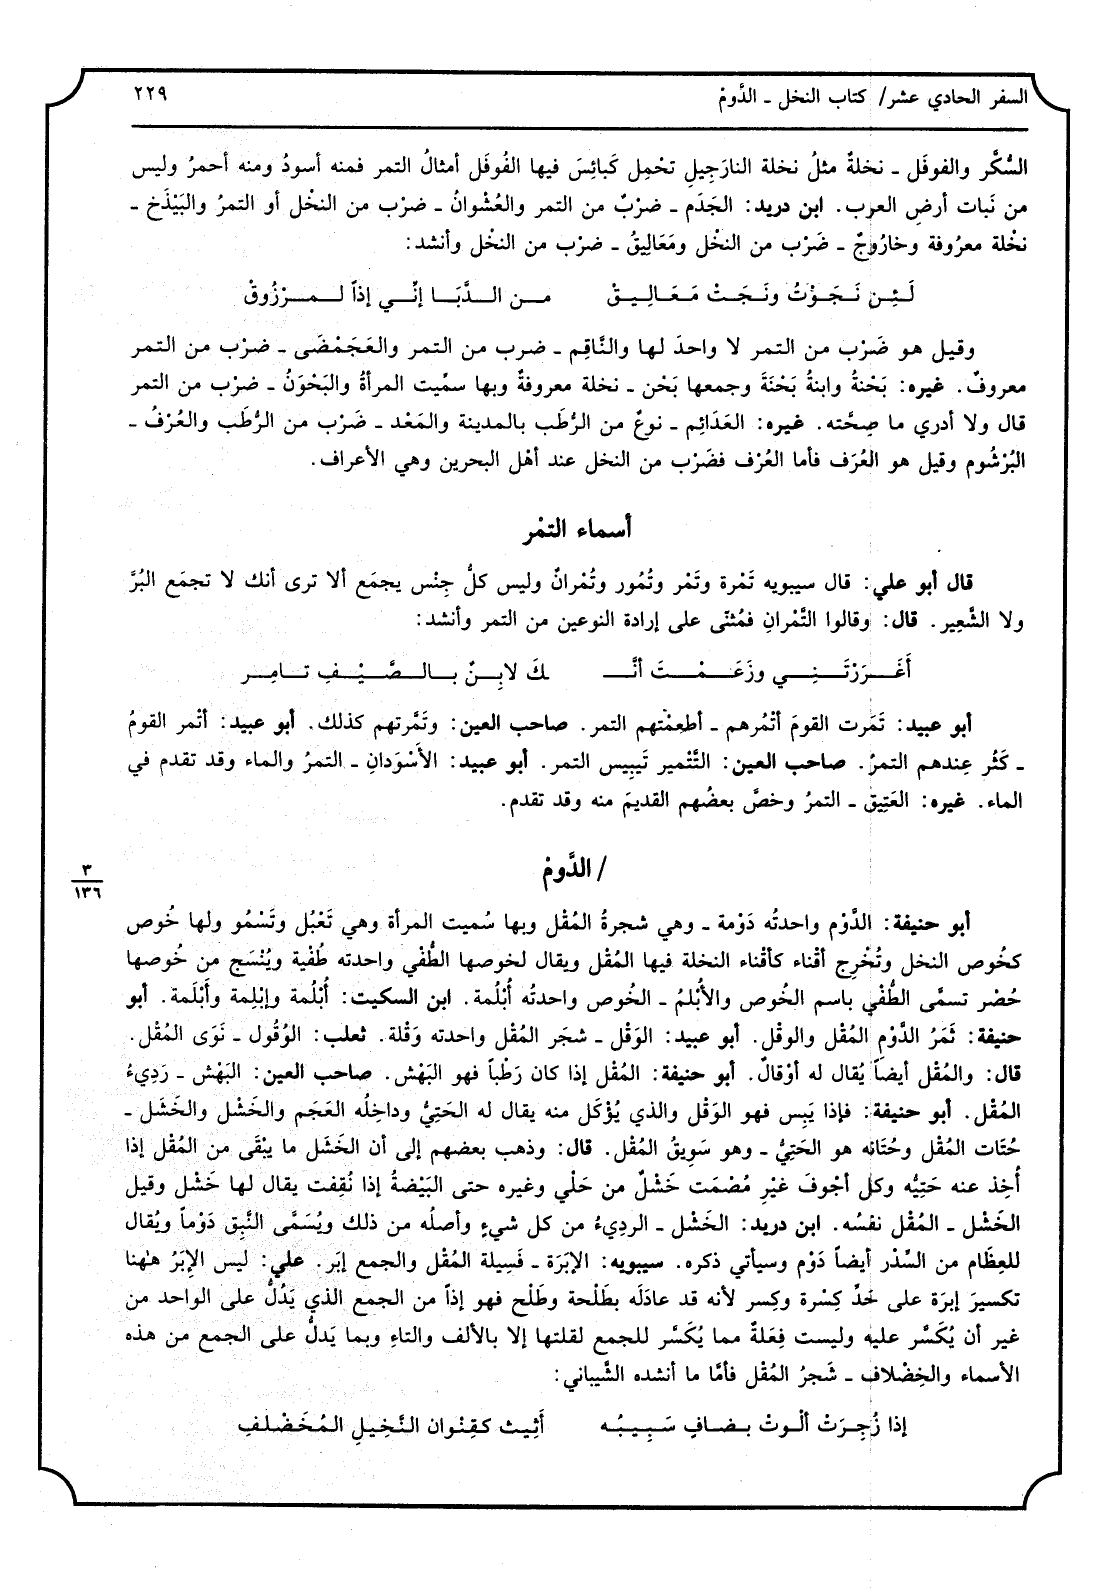 السفر الحادي عشر/ كتاب النخل ـ الدَّومْ
٢٢٩
السُّكَّر والفوفَل ـ نخلةٌ مثلُ نخلة النارَجِيلِ تحْمِل كَبائِسَ فيها الفُوفَل أمثالُ التمر فمنه أسودُ ومنه أحمرُ وليس
من نَبات أرضِ العرب. ابن دريد: الجَدَم ـ ضرْبٌ من التمر والعُشْوانُ ـ ضرْب من النخْل أو التمرُ والبَيْذَخ ـ
نخْلة معرُوفة وخارُوجٌ ـ ضَرْب من النخْل ومَعَالِيقُ ـ ضرْب من النخْل وأنشد:
لَئِن نَجَوْتُ ونَجَتْ مَعَالِيقْ من الدَّبَا إنِّي إذاً لمرْزُوقْ
وقيل هو ضَرْب من التمر لا واحدَ لها والنَّاقِم ـ ضرب من التمر والعَجَمْضَى ـ ضرْب من التمر
معروفٌ. غيره: بَحْنةُ وابنةُ بَحْنَةَ وجمعها بَحْن ـ نخلة معروفةٌ وبها سمِّيت المرأةُ والبَحْوَنُ ـ ضرْب من التمر
قال ولا أدري ما صِحَّته. غيره: العَدَائِم ـ نوعٌ من الرُّطَب بالمدينة والمَعْد ـ ضَرْب من الرُّطَب والعُرْفُ ـ
البُرْشُوم وقيل هو العُرَف فأما العُرْف فضَرْب من النخل عند أهل البحرين وهي الأعراف.
أسماء التمْر
قال أبو علي: قال سيبويه تَمْرة وتَمْر وتُمُور وتُمْرانٌ وليس كلُّ جِنْس يجمَع ألا ترى أنك لا تجمَع البُرَّ
ولا الشَّعِير. قال: وقالوا التَّمْرانِ فمُثنّى على إرادة النوعين من التمر وأنشد:
أَغَرَرْتَنِي وزَعَمْتَ أنَّـ ـكَ لابِنٌ بالصَّيْفِ تامِر
أبو عبيد: تَمَرت القومَ أتْمُرهم ـ أطعمْتهم التمر. صاحب العين: وتَمَّرتهم كذلك. أبو عبيد: أتْمر القومُ
ـ كَثُر عِندهم التمرُ. صاحب العين: التَّتْمير تَيبِيس التمر. أبو عبيد: الأَسْوَدانِ ـ التمرُ والماء وقد تقدم في
الماء. غيره: العَتِيق ـ التمرُ وخصَّ بعضُهم القديمَ منه وقد تقدم.
/ الدَّومْ
٣
١٣٦
أبو حنيفة: الدَّوْم واحدتُه دَوْمة ـ وهي شجرةُ المُقْل وبها سُميت المرأة وهي تَعْبُل وتَسْمُو ولها خُوص
كخُوص النخل وتُخْرِج أقْناء كأقْناء النخلة فيها المُقْل ويقال لخوصها الطُّفْي واحدته طُفْية ويُنْسَج من خُوصها
حُصْر تسمَّى الطُّفْي باسم الخُوص والأُبْلمُ ـ الخُوص واحدتُه أُبْلُمة. ابن السكيت: أُبْلُمة وإبْلِمة وأَبْلَمة. أبو
حنيفة: ثَمَرُ الدَّوْم المُقْل والوقْل. أبو عبيد: الوَقْل ـ شجَر المُقْل واحدته وَقْلة. ثعلب: الوُقُول ـ نَوَى المُقْل.
قال: والمُقْل أيضاً يُقال له أوْقالٌ. أبو حنيفة: المُقْل إذا كان رَطْباً فهو البَهْش. صاحب العين: البَهْش ـ رَدِيءُ
المُقْل. أبو حنيفة: فإذا يَبِس فهو الوَقْل والذي يُؤْكَل منه يقال له الحَتِيُّ وداخِلُه العَجَم والخَشْل والخَشَل ـ
حُتَات المُقْل وحُتَاتُه هو الحَتِيُّ ـ وهو سَوِيقُ المُقْل. قال: وذهب بعضهم إلى أن الخَشَل ما يبْقَى من المُقْل إذا
أُخِذ عنه حَتِيُّه وكل أجْوفَ غيْرِ مُصْمَت خَشْلٌ من حَلْي وغيره حتى البَيْضةُ إذا نُقِفت يقال لها خَشْل وقيل
الخَشْل ـ المُقْل نفسُه. ابن دريد: الخَشْل ـ الردِيءُ من كل شيءٍ وأصلُه من ذلك ويُسَمَّى النَّبِق دَوْماً ويُقال
للعِظَام من السِّدْر أيضاً دَوْم وسيأتي ذكره. سيبويه: الإبْرَة ـ فَسِيلة المُقْل والجمع إبَر. علي: ليس الإبَرُ هٰهنا
تكسيرَ إبرَة على حَدِّ كِسْرة وكِسر لأنه قد عادَلَه بطَلْحة وطَلْح فهو إذاً من الجمع الذي يَدُلُّ على الواحد من
غير أن يُكَسَّر عليه وليست فِعَلةٌ مما يُكَسَّر للجمع لقلتها إلا بالألف والتاءِ وبما يَدلُّ على الجمع من هذه
الأسماء والخِضْلاف ـ شَجرُ المُقْل فأمَّا ما أنشده الشَّيباني:
إذا زُجِرَتْ ألْوتْ بضافٍ سَبِيبُه أَثِيث كقِنْوان النَّخِيلِ المُخَضْلَفِ